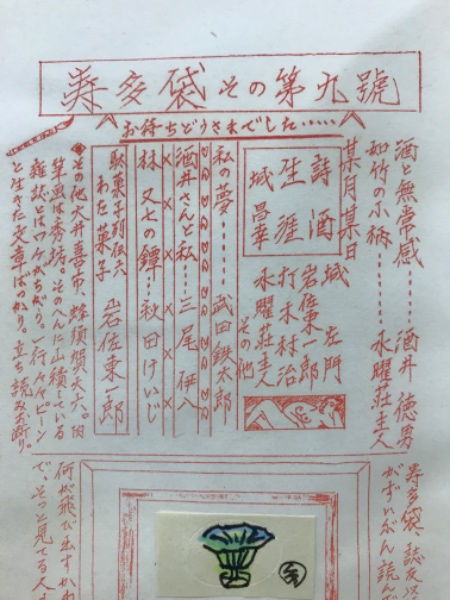 寿多袋その第九號
お待ちどうさまでした……
酒と無常感……酒井徳男
如竹の小柄……水曜荘主人
某月某日
城左門
岩佐東一郎
打木村治
水曜荘主人
その他
詩酒
生涯
城昌幸
私の夢……武田鉄太郎
酒井さんと私……三尾伊八
林又七の鐔…秋田けいじ
駄菓子列伝六
わた菓子 岩佐東一郎
その他大井喜市、蜂須賀大六。
筆画は秀坊。そのへんに山積している
雑誌とはワケがちがう。一行々々ピーン
と生きた文章ばっかり。立ち読みお断り。
寿多袋、誌友以
がずいぶん読んで
何が飛び出すかわ
で、そっと見てる人